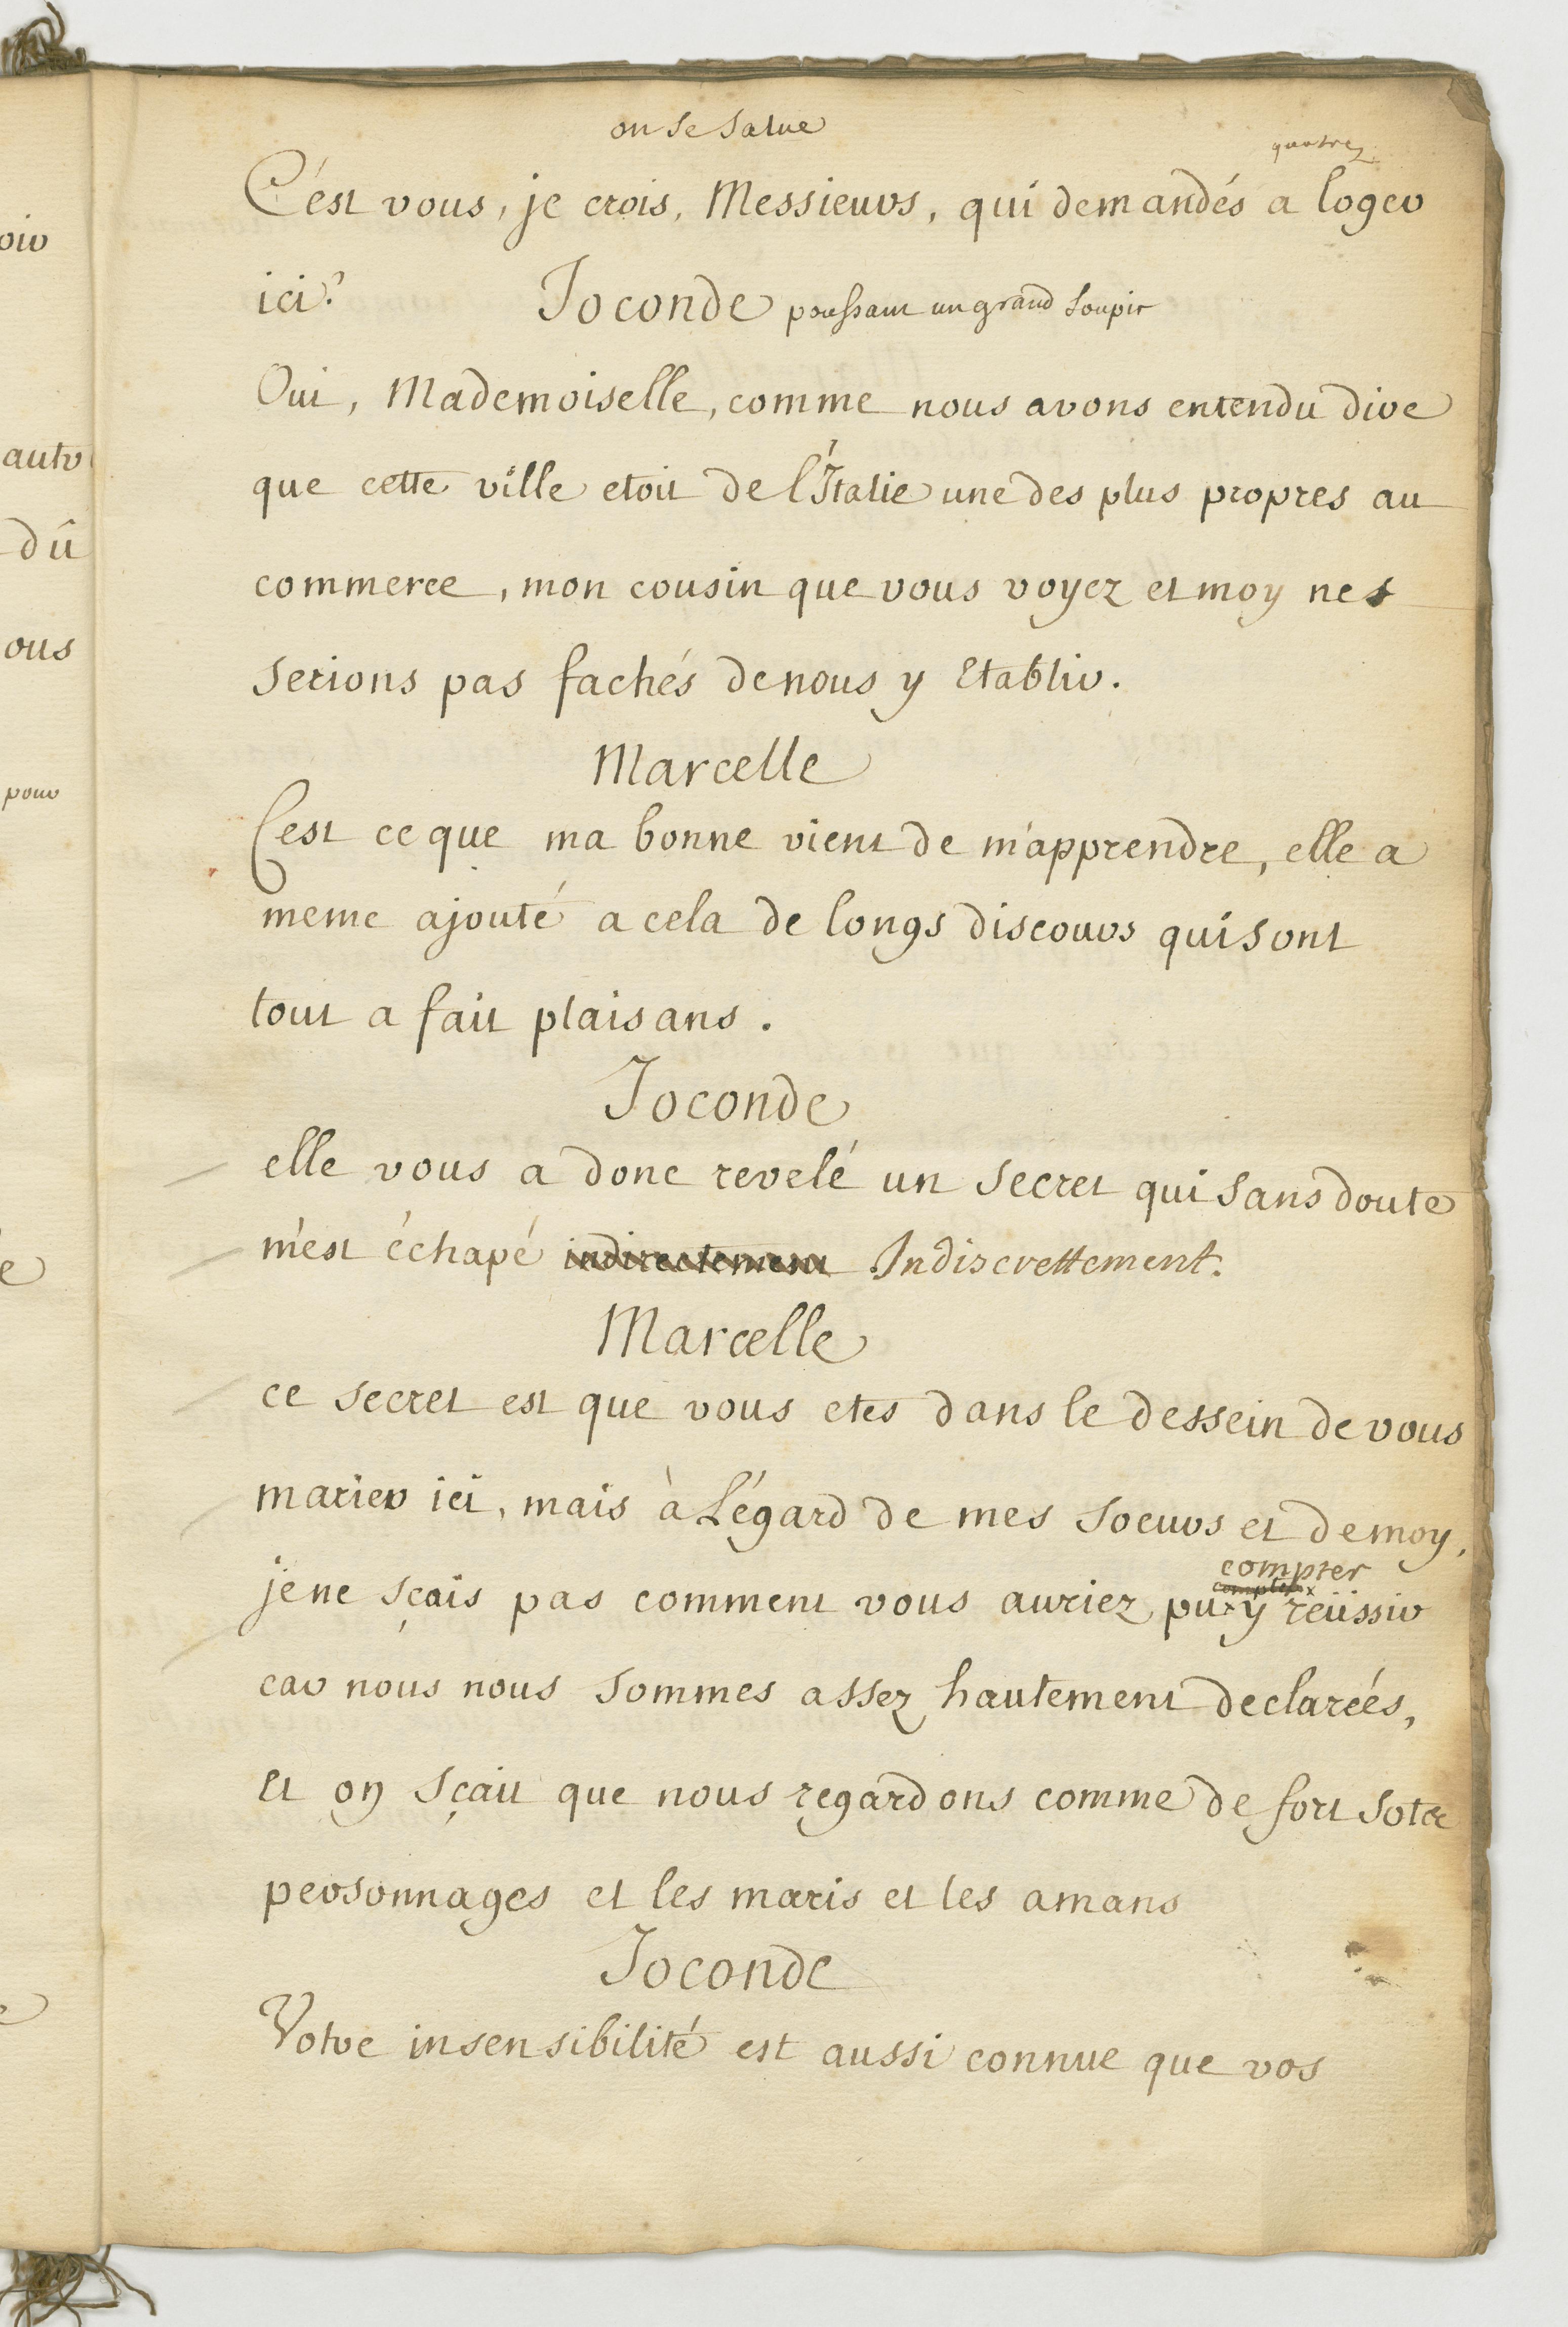 oir
autr
dû
ous
pour
on se salue
quatre
C'est vous, je crois, Messieurs, qui demandés a loger
ici? Joconde poussant un grand soupir
Oui, Mademoiselle, comme nous avons entendu dire
que cette ville etoit de l'Italie une des plus propres au
commerce, mon cousin que vous voyez et moy ne
serions pas fachés de nous y Etablir.
Marcelle
C'est ce que ma bonne vient de m'apprendre, elle a
meme ajouté a cela de longs discours qui sont
tout a fait plaisans.
Joconde
elle vous a donc revelé un secret qui sans doute
m'est échapé indirectement Indiscrettement.
Marcelle
ce secret est que vous etes dans le dessein de vous
marier ici, mais à L'égard de mes soeurs et de moy,
compter
compter
je ne sçais pas comment vous auriez pu x y reüssir
car nous nous sommes assez hautement declareés,
et on sçait que nous regardons comme de fort sots
personnages et les maris et les amans
Joconde
Votre insensibilité est aussi connue que vos